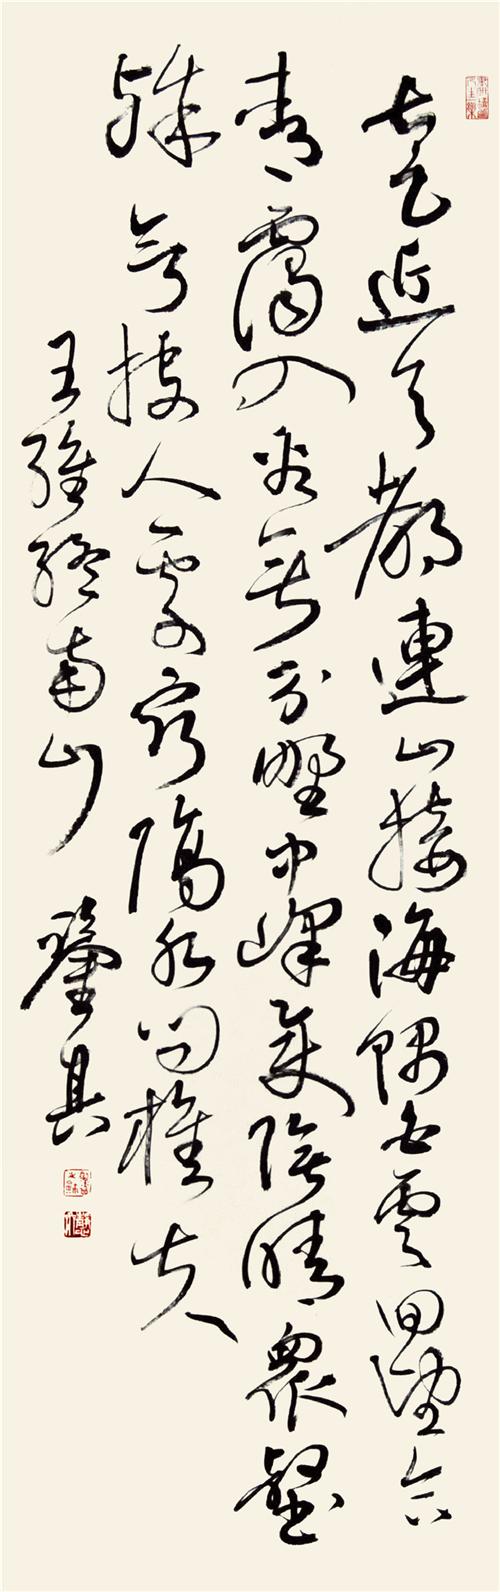 太乙近天都連山接海隅白雲回望合
青靄入看無分野中峰變陰晴眾壑
殊欲投人處宿隔水問樵夫
王維終南山